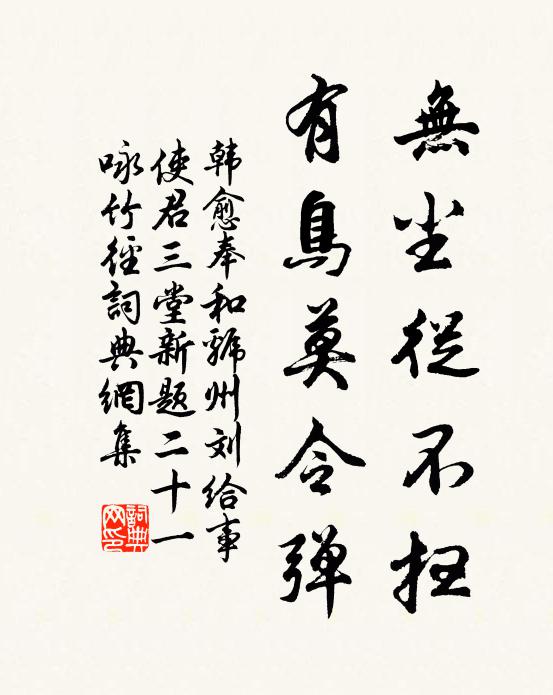 無尘從不扫
有鳥莫令弹
韩愈奉和虢州刘给事
使君三堂新题二十一
咏竹徑詞典網集
詞典
网印